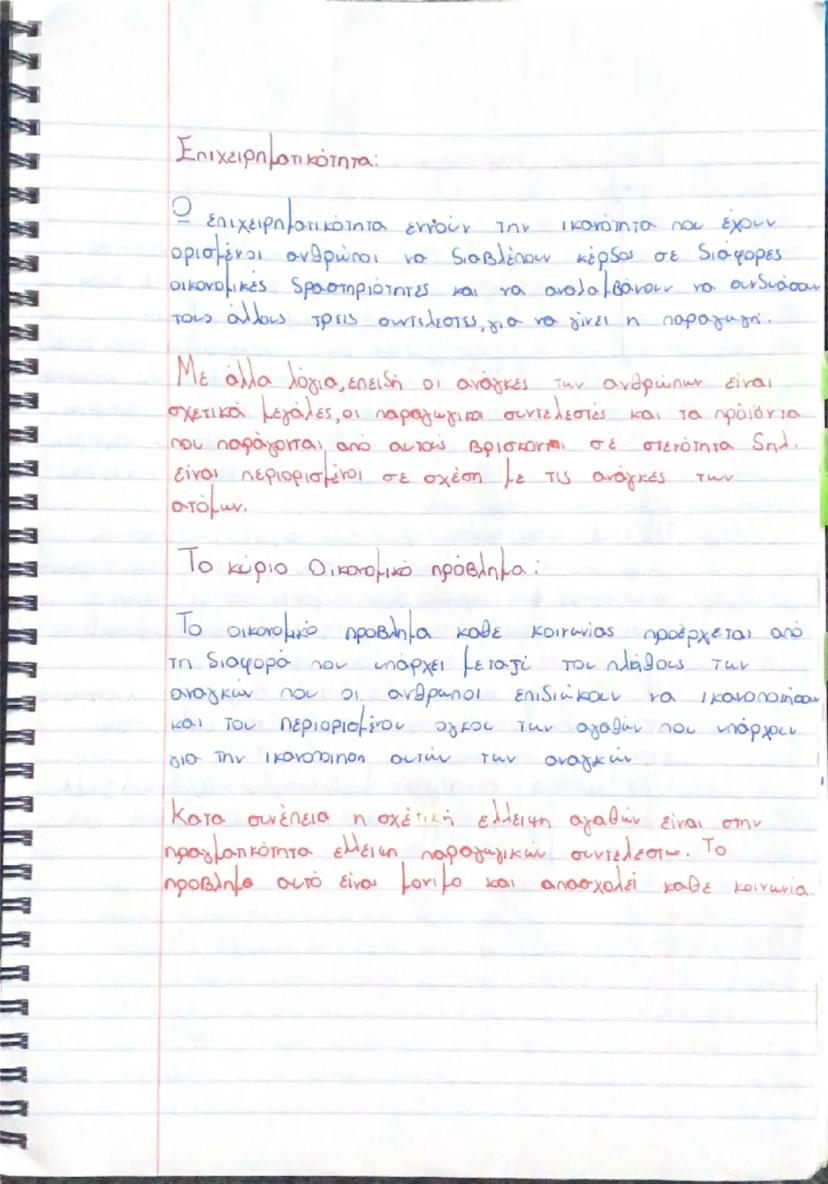 Επιχειρηματικότητα:
Ο επιχειρηματικότητα εννόουν την ικανότητα που έχουν
ορισμένοι ανθρώποι να διαβλέπουν κέρδος σε διάφορες
οικονομικές δραστηριότητες και να αναλαμβάνουν να συνδυάσουν
τους άλλους τρεις συντελεστες, για να γίνει η παραγωγή.
Με άλλα λόγια, επειδή οι ανάγκές των ανθρώπων είναι
σχετικά μεγάλες, οι παραγωγικοι συντελεστές και τα προϊόντα
που παράγονται από αυτούς βρισκονται σε στενότητα δηλ.
είναι περιορισμένοι σε σχέση με τις ανάγκές των
ατόμων.
Το κύριο Οικονομικό πρόβλημα:
Το οικονομικό προβλημα καθε κοινωνίας προέρχεται από
τη διαφορά που υπάρχει μεταξί του πλήθους των
αναγκών που οι ανθρωποι επιδιώκουν να ικανοποιήσουν
και του περιορισμένου ογκου των αγαθών που υπάρχουν
για την ικανοποιηση αυτών των αναγκών
Κατα συνέπεια η σχέτική ελλειψη αγαθών είναι στην
πραγματικότητα ελλειψη παραγωγικών συντελεστω. Το
προβλημα αυτό είναι μονιμο και απασχολεί καθε κοινωνία.